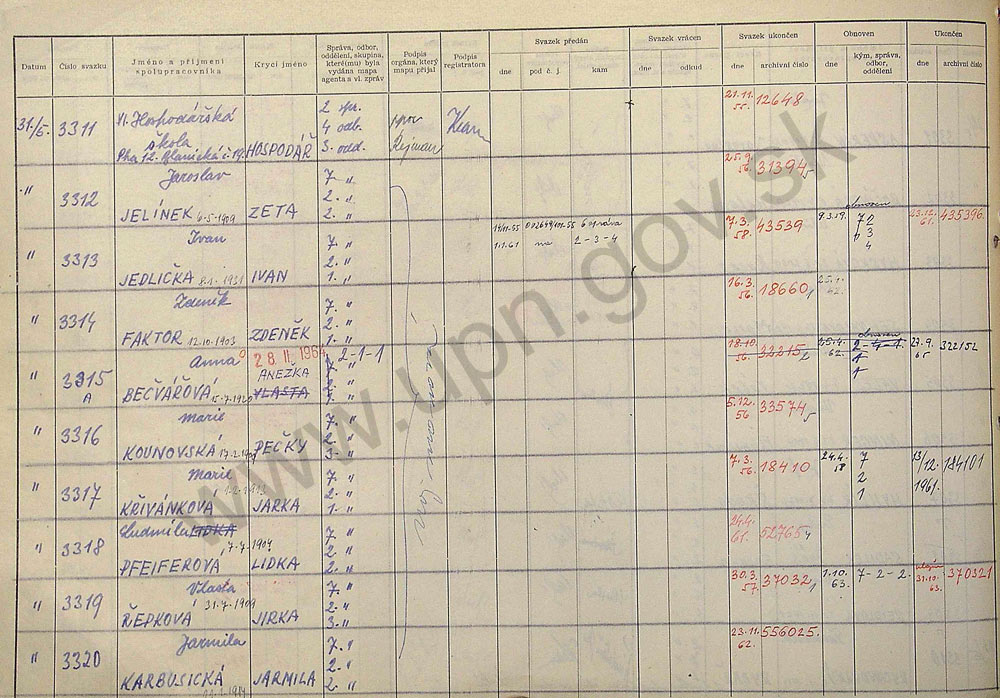 Datum
Číslo svazku
Jméno a příjmení spolupracovníka
Krycí jméno
Správa, odbor, oddělení, skupina, které(mu) byla vydána mapa agenta a vl. zpráv
Podpis orgána, který mapu přijal
Podpis registratora
Svazek předán
dne
pod č. j.
kam
Svazek vrácen
dne
odkud
Svazek ukončen
dne
archivní číslo
Obnoven
dne
kým, správa, odbor, oddělení
Ukončen
dne
archivní číslo
31./5. 3311 Hospodářská škola Pha 12. Blanická č. HOSPODÁŘ 2 spr. 4 odb. 3. odd. 21.11. 55. 12648
" 3312 Jaroslav JELÍNEK 6-5-1909 ZETA 7 " 2. " 2. " 25.9. 56. 31394
" 3313 Ivan JEDLIČKA 1931 IVAN 7. " 2. " 1. " 1.1.61 2-3-4 7.3. 58. 43539 obnoven 7 2 3 4 23.12. 61. 435396
" 3314 Zdeněk FAKTOR 12.10.1903 ZDENĚK 7. " 2. " 1. " 16.3. 56. 18660
" 3315 A Anna BEČVÁŘOVÁ 28 II. 1964 ANEZKA VLASTA 2-1-1 7. " 18.10. 56. 32215 62. obnoven 2-1-1 23.9. 65 322152
" 3316 Marie KOUNOVSKÁ PEČKY 7. " 2. " 3. " 5.12. 56 33574
" 3317 Marie KŘIVÁNKOVÁ JARKA 7. " 2. " 1. " 7.3. 56. 18410 24.4. 58 7 2 1 13/12. 1961. 184101
" 3318 Ludmila LIDKA PFEIFEROVÁ 7-7-1904 LIDKA 7. " 2. " 2. " 24.4. 61. 52765
" 3319 Vlasta ŘEPKOVÁ 31.7.1909 JIRKA 7. " 2. " 3. " 30.3. 57. 37032 1.10. 63. 7-2-2. 31.10. 63. 370321
" 3320 Jarmila KARBUSICKÁ JARMILA 7. " 2. " 2. " 23.11. 62. 556025.
www.upn.gov.sk